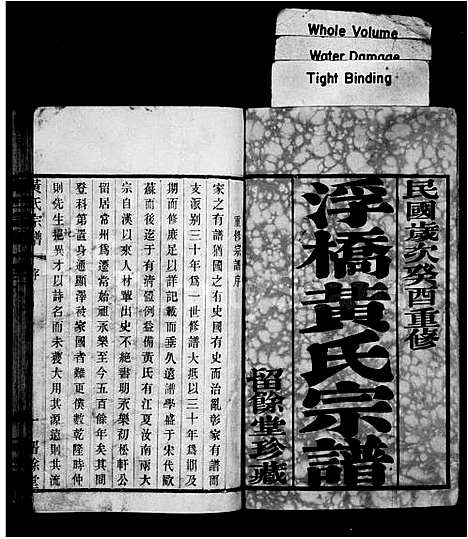 Whole Volume
Water Damage
Tight Binding
民國歲次癸酉重修
浮橋黃氏宗譜
留餘堂珍藏
重修宗譜序
家之有譜猶國之有史國有史而治亂彰家有譜而
支派別三十年爲一世修譜大抵以三十年爲期及
期而修庶足以詳記載而垂久遠譜學盛于宋代歐
蘇而後迄于有清體例益備黃氏有江夏汝南兩大
宗自漢以來人材輩出史不絕書明永樂初松軒公
留居常州爲遷常始祖永樂至今五百餘年矣其間
登科第置身通顯澤被家國者難更僕數乾隆時仲
則先生擢異才以詩名而未獲大用其源遠則其流
黃氏宗譜 序 一 留餘堂